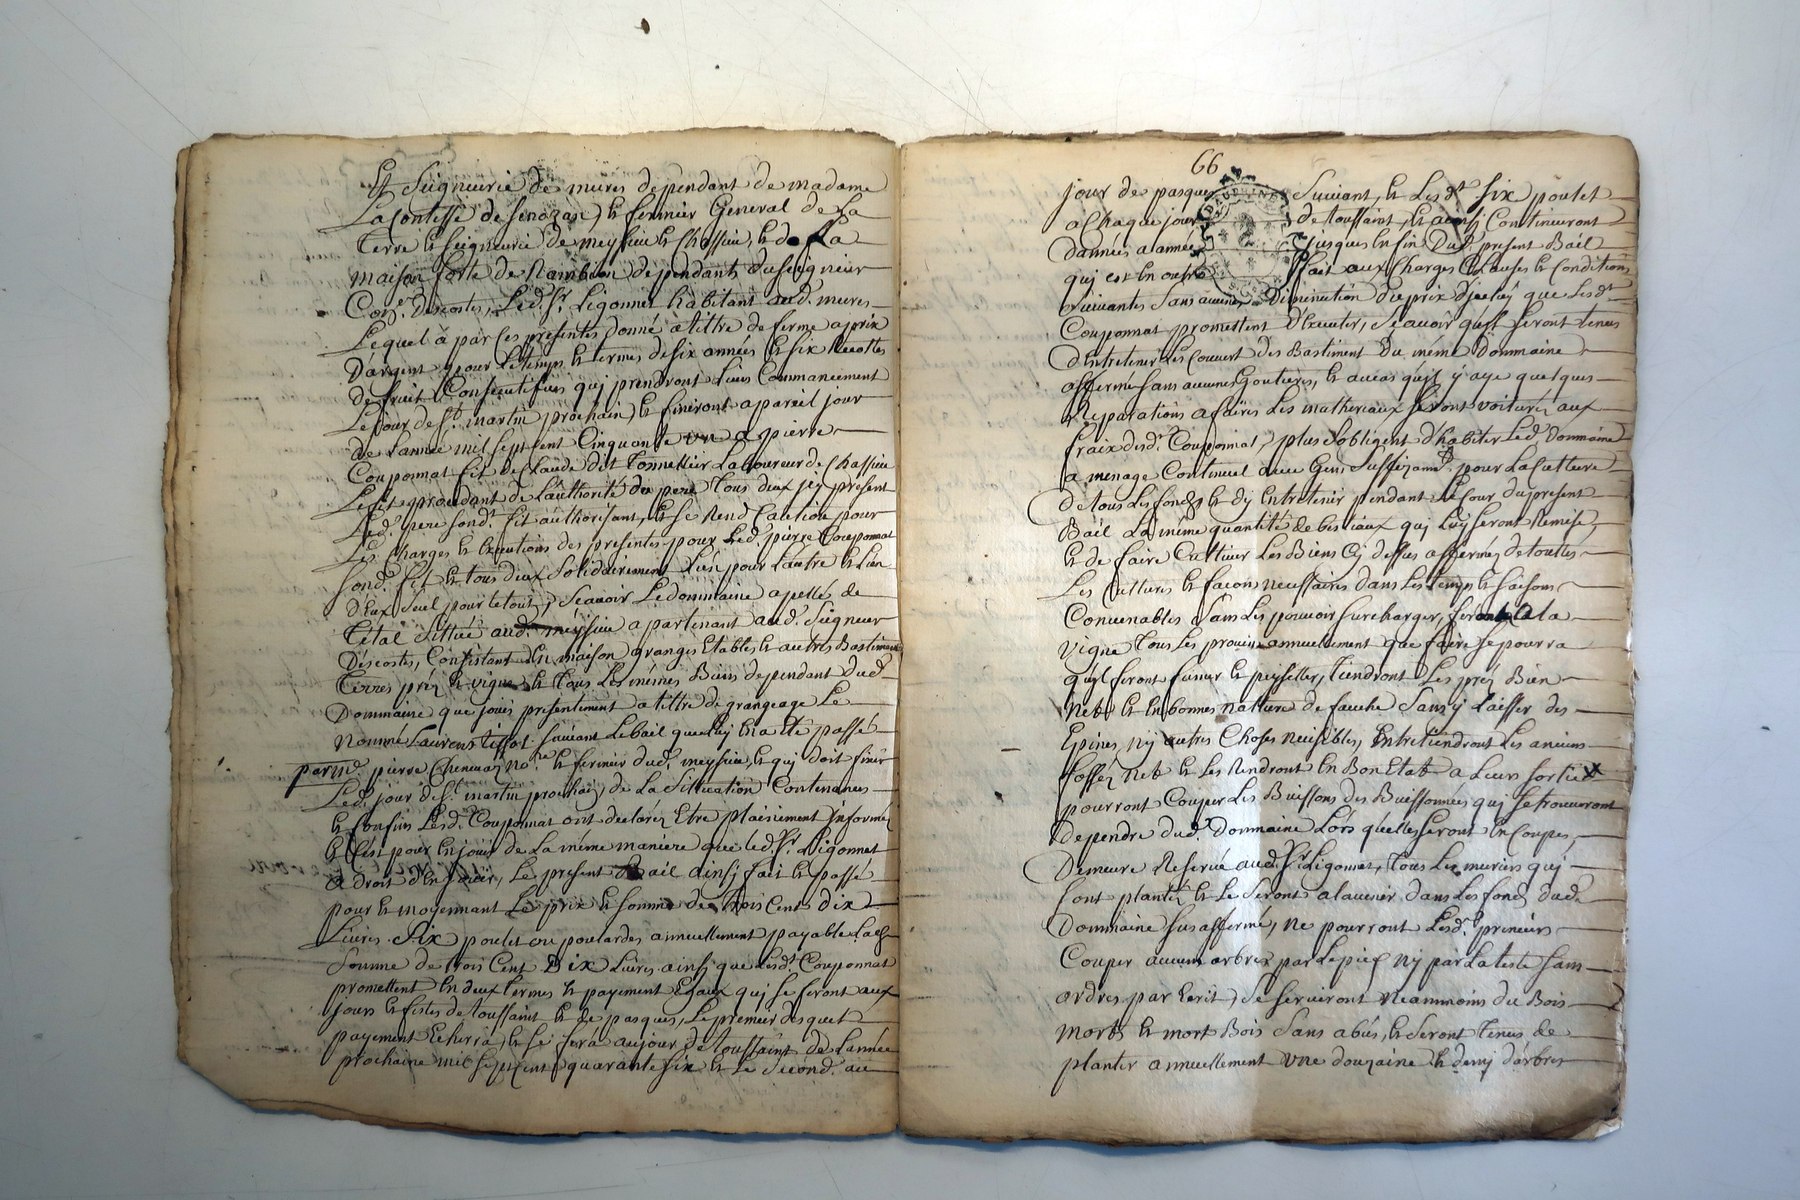 Et Seigneurie de mures dependant de madame
La Contesse de Senozan, & fermier General de La
terre & Seigneurie de meyssieu & Chassieu, & de La
maison forte de Rambion dependants du Seigneur
Con.er Descostes, Led. Sr. Ligonnet habitant aud. mures
Lequel à par Ces presentes donné à tittre de ferme a prix
D'argent pour Le temps & termes de six années & six Recoltes
de fruit Consecutifues quj prendront Leurs Commancement
Le Jour de St. martin prochain, & finiront a pareil jour
de Lannée mil sept Cent Cinquante un a pierre
Couponnat fit de Claude dit Tonnellier Laboureur de Chassieu
Le fit procedant de L'authorité du pere tous deux jcy present
Led. pere sond. fit authorisant, & se Rend Caution pour
Les Charges & Executions des presentes pour Led. pierre Couponnat
sond. fit & tous deux Solidairement L'un pour L'autre & L'un
D'eux Seul pour le tout, Scauoir Le dommaine apellé de
Tital Sittué aud. meyssieu apartenant aud. Seigneur
Descostes, Consistant En maison granges Etables & autres Bastiments
Terres prez & vigne & tous Les mêmes Biens dependant dud.
Dommaine que jouis presentement a tittre de grangeage Le
Nommé Laurens tissot suiuant Le bail que Luy En a Eté passé
par Me. pierre Chenauaz No.re & fermier dud. meyssieu, & quj doit finir
Led. jour de St. martin prochain, de La Sittuation Contenances
& Confins Lesd. Couponnat ont declarez Etre plainement Informez
& C'est pour En jouir de La même manière que led. Sr. Ligonnet
a droit d'En jouir, Le present Bail ainsj fait & passé
pour & moyennant Le prix & somme de trois Cents dix
Liures Six poulet ou poulardes annuellement payable Lad.
Somme de trois Cent Dix Liures ainsj que Lesd.t Couponnat
promettent En deux termes & payement Egaux quj se feront aux
jours & festes de toussaint & de pasques, Le premier desquel
payement Echerra, & se fera au jour de toussaint de Lannée
prochaine mil sept Cent quarante six & Le Second au
66
jour de pasques Suiuant, & Lesd.t Six poulet
a Chaque jour de toussaint, & ainsj Continueront
d'années a année jusques En fin Dud. present Bail
quj est En outre fait aux Charges Clauses & Conditions
suiuantes Sans aucune Diminution du prix d'jceluy que Lesd.t
Couponnat promettent d'Executer, Scauoir qu'jl Seront tenus
d'Entretenir Les Couuert des Bastiment Du même Dommaine
affermé sans aucunes Goutieres, & au cas qu'jl y aye quelques
Reparations a faires Les matheriaux seront voiturez aux
fraix desd. Couponnat, plus s'obligent d'habiter Led. Dommaine
a menage Continuel auec Gens Suffizamt. pour La Culture
De tous Les fonds & d'y Entretenir pendant Le Cour du present
Bail La même quantité de bestiaux quj Luy seront Remise,
& de faire Cultiuer Les Biens Cy dessus affermés de touttes
Les Cultures & façon necessaires dans Les temps & saisons
Conuenables Sans Les pouuoir surcharger, feront a La
vigne tous Les prouins annuellement que faire se pourra
qu'jl feront fumer & peysseller, tiendront Les prez Bien
Net & En bonnes nature de fauche Sans y Laisser des
Epines, ny autres Choses nuisibles, Entretiendront Les anciens
fossez Net & Les Rendront En Bon Etat a Leur sortie x
pourront Couper Les Buissons des Buissonnées quj se trouueront
dependre dud. Dommaine Lors qu'elles seront En Coupes,
Demeure Reserué aud. Sr. Ligonnet, tous Les muriers quj
sont plantez & Le Seront alauenir dans Les fonds dud.
Dommaine susaffermé, ne pourront Lesd. preneurs
Couper aucuns arbres par Le pied ny par La teste sans
ordres par Ecrit, Se seruiront Neammoins du Bois
morts & mort Bois Sans abus, & Seront tenus de
planter annuellement vne douzaine & demj d'arbres